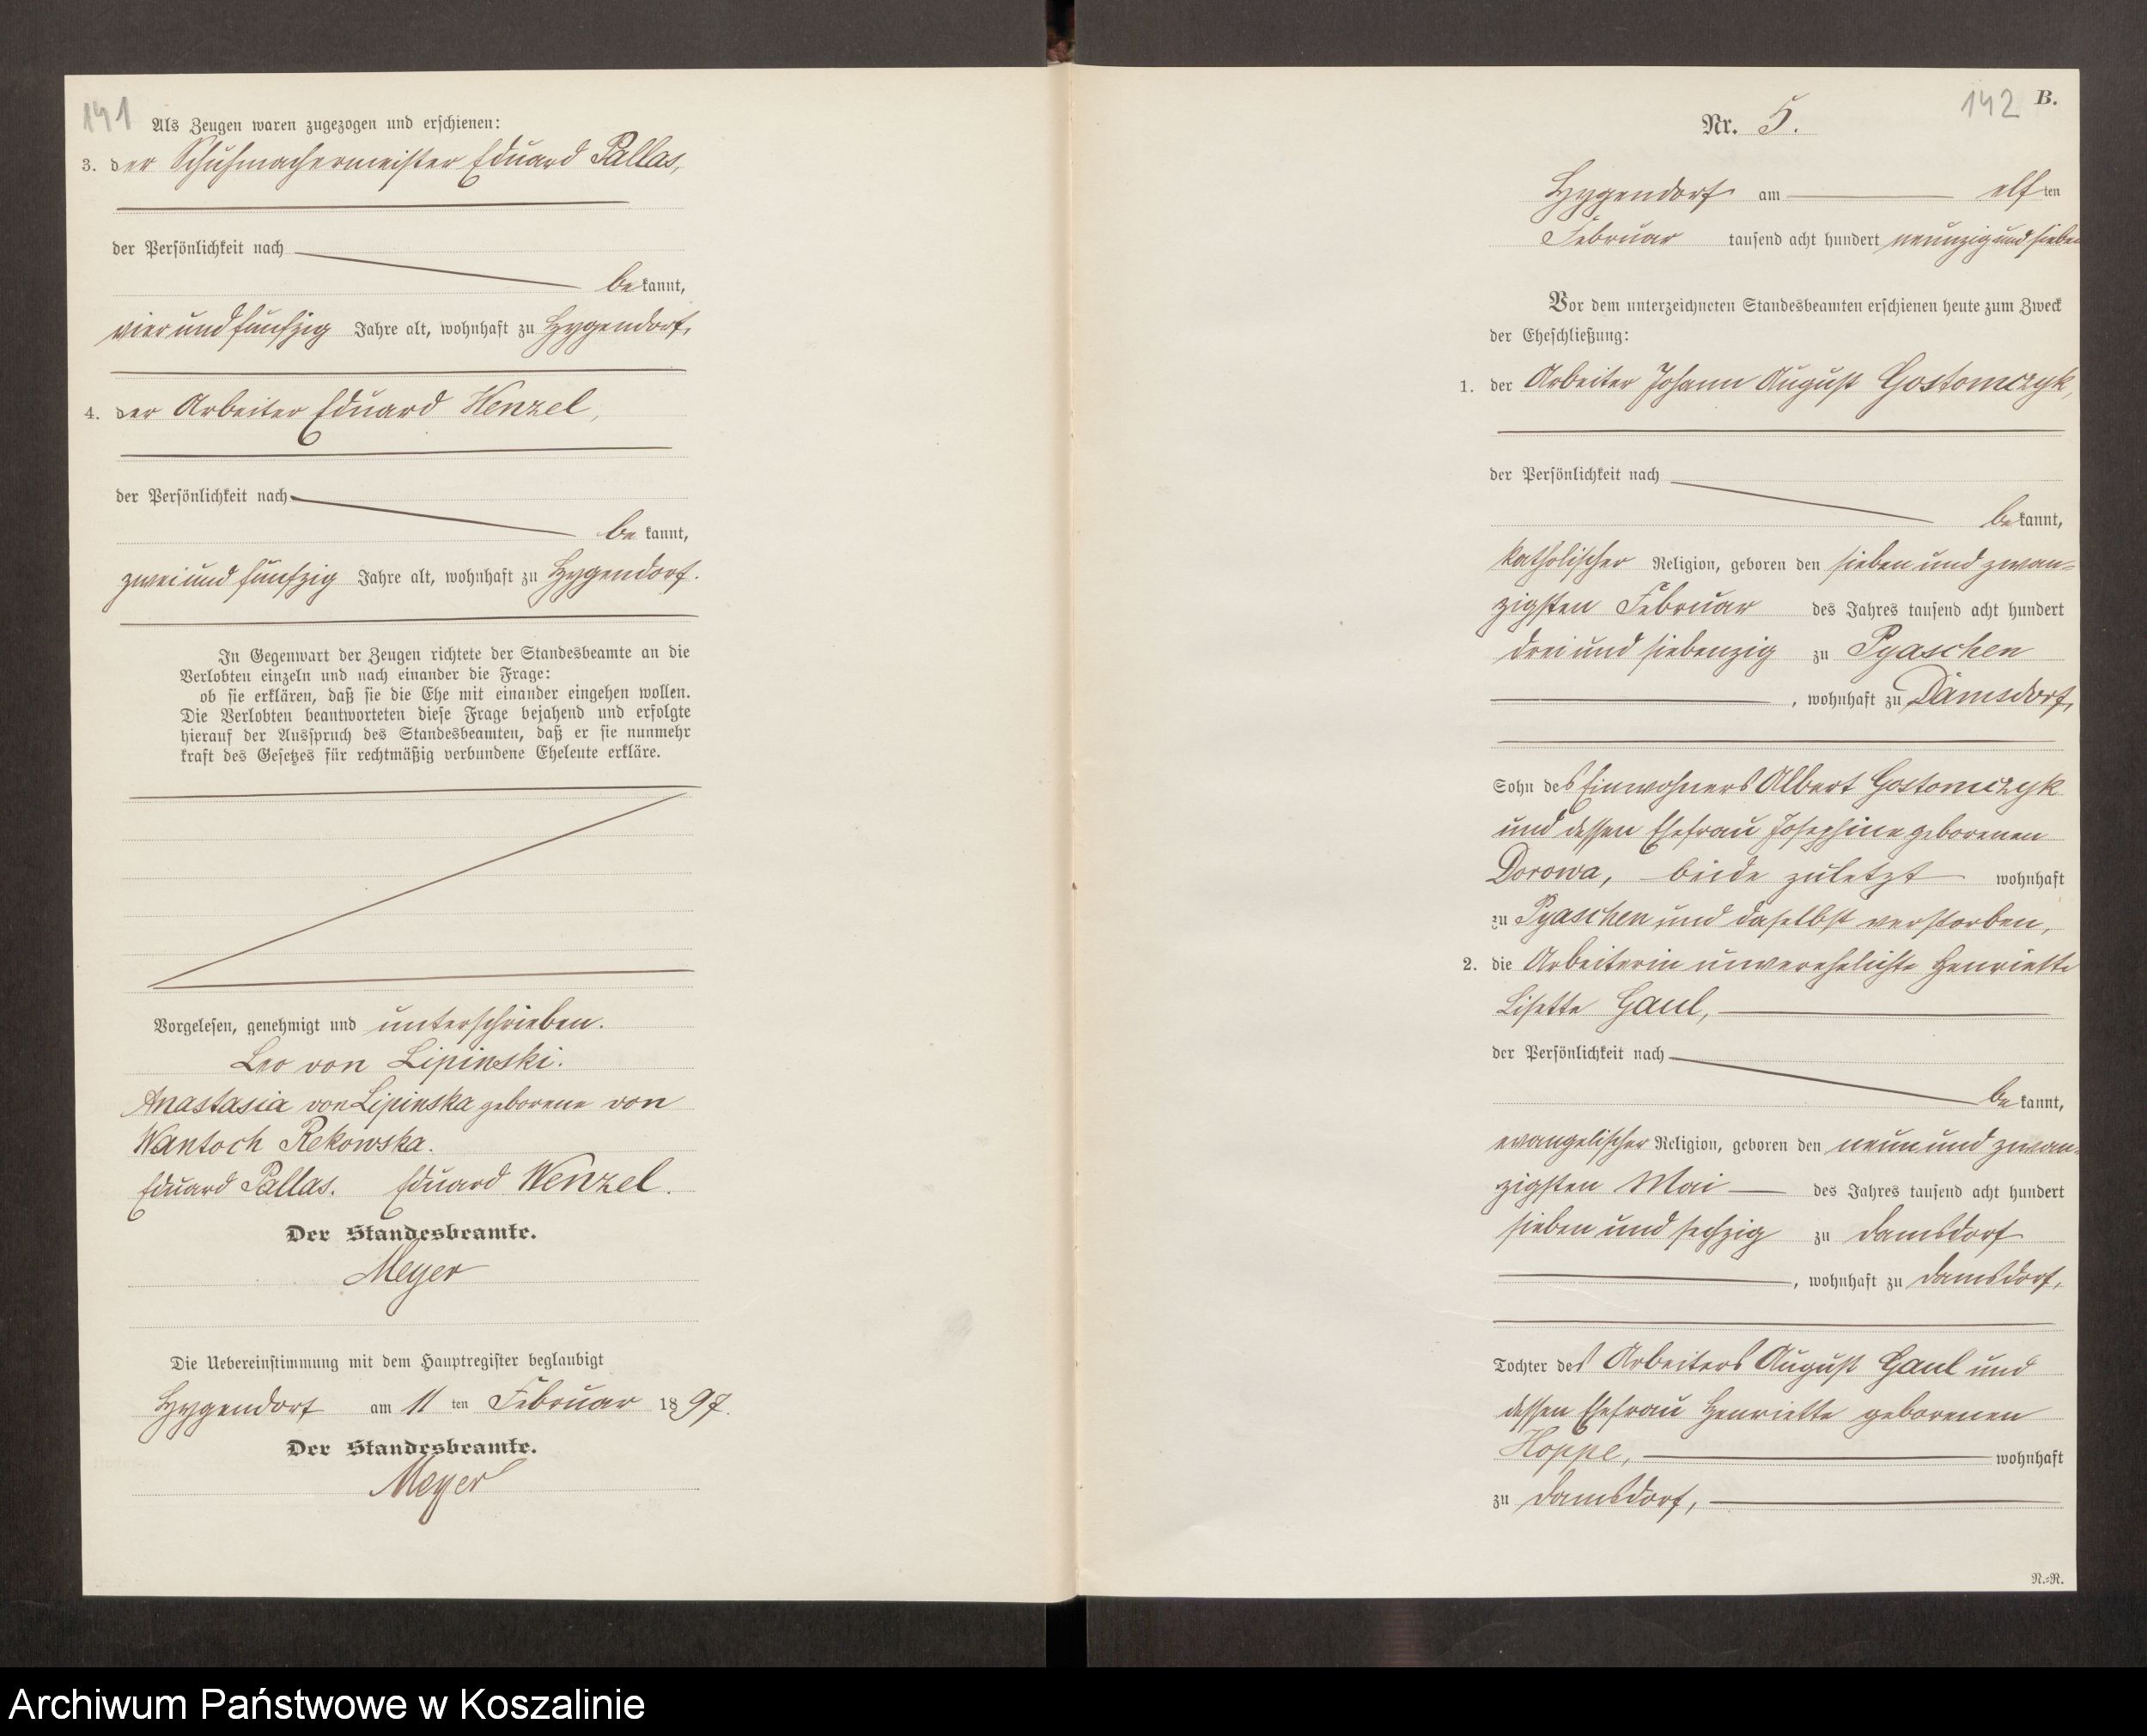 141
Als Zeugen waren zugezogen und erschienen:
3. der Schuhmachermeister Eduard Pallas,
der Persönlichkeit nach
bekannt,
vier und fünfzig Jahre alt, wohnhaft zu Hygendorf,
4. der Arbeiter Eduard Wenzel,
der Persönlichkeit nach
bekannt,
zwei und fünfzig Jahre alt, wohnhaft zu Hygendorf.
In Gegenwart der Zeugen richtete der Standesbeamte an die
Verlobten einzeln und nach einander die Frage:
ob sie erklären, daß sie die Ehe mit einander eingehen wollen.
Die Verlobten beantworteten diese Frage bejahend und erfolgte
hierauf der Ausspruch des Standesbeamten, daß er sie nunmehr
kraft des Gesetzes für rechtmäßig verbundene Eheleute erkläre.
Vorgelesen, genehmigt und unterschrieben.
Leo von Lipinski.
Anastasia von Lipinska geborene von
Wantoch Rekowska.
Eduard Pallas. Eduard Wenzel.
Der Standesbeamte.
Meyer
Die Uebereinstimmung mit dem Hauptregister beglaubigt
Hygendorf am 11 ten Februar 1897.
Der Standesbeamte.
Meyer
142 B.
Nr. 5.
Hygendorf am elf ten
Februar tausend acht hundert neunzig und sieben
Vor dem unterzeichneten Standesbeamten erschienen heute zum Zweck
der Eheschließung:
1. der Arbeiter Johann August Gostomczyk,
der Persönlichkeit nach
bekannt,
katholischer Religion, geboren den sieben und zwan-
zigsten Februar des Jahres tausend acht hundert
drei und siebenzig zu Pyaschen
, wohnhaft zu Damsdorf,
Sohn des Einwohners Albert Gostomczyk
und dessen Ehefrau Josephine geborenen
Dorowa, beide zuletzt wohnhaft
zu Pyaschen und daselbst verstorben,
2. die Arbeiterin unverehelichte Henriette
Lisette Gaul,
der Persönlichkeit nach
bekannt,
evangelischer Religion, geboren den neun und zwan-
zigsten Mai des Jahres tausend acht hundert
sieben und sechzig zu Damsdorf
, wohnhaft zu Damsdorf,
Tochter des Arbeiters August Gaul und
dessen Ehefrau Henriette geborenen
Hoppe, wohnhaft
zu Damsdorf,
R.-R.
Archiwum Państwowe w Koszalinie